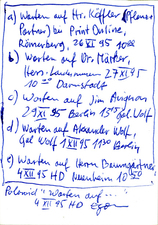 a) Warten auf Hr. Käffler (Klaus
Partner) bei Print Online,
Römerberg, 26 XI 95 10⁰⁰
b) Warten auf Dr. Mätter,
27 XI 95
10 Darmstadt
c) Warten auf Jim Avignon
29 XI 95 Berlin 15 Gal. Wolf
d) Warten auf Alexander Wolf,
Gal Wolf 1 XII 95 11 Berlin
e) Warten auf Herrn Baumgartner
4 XII 95 HD Neuenheim 10
Polaroid "Warten auf..."
4 XII 95 HD